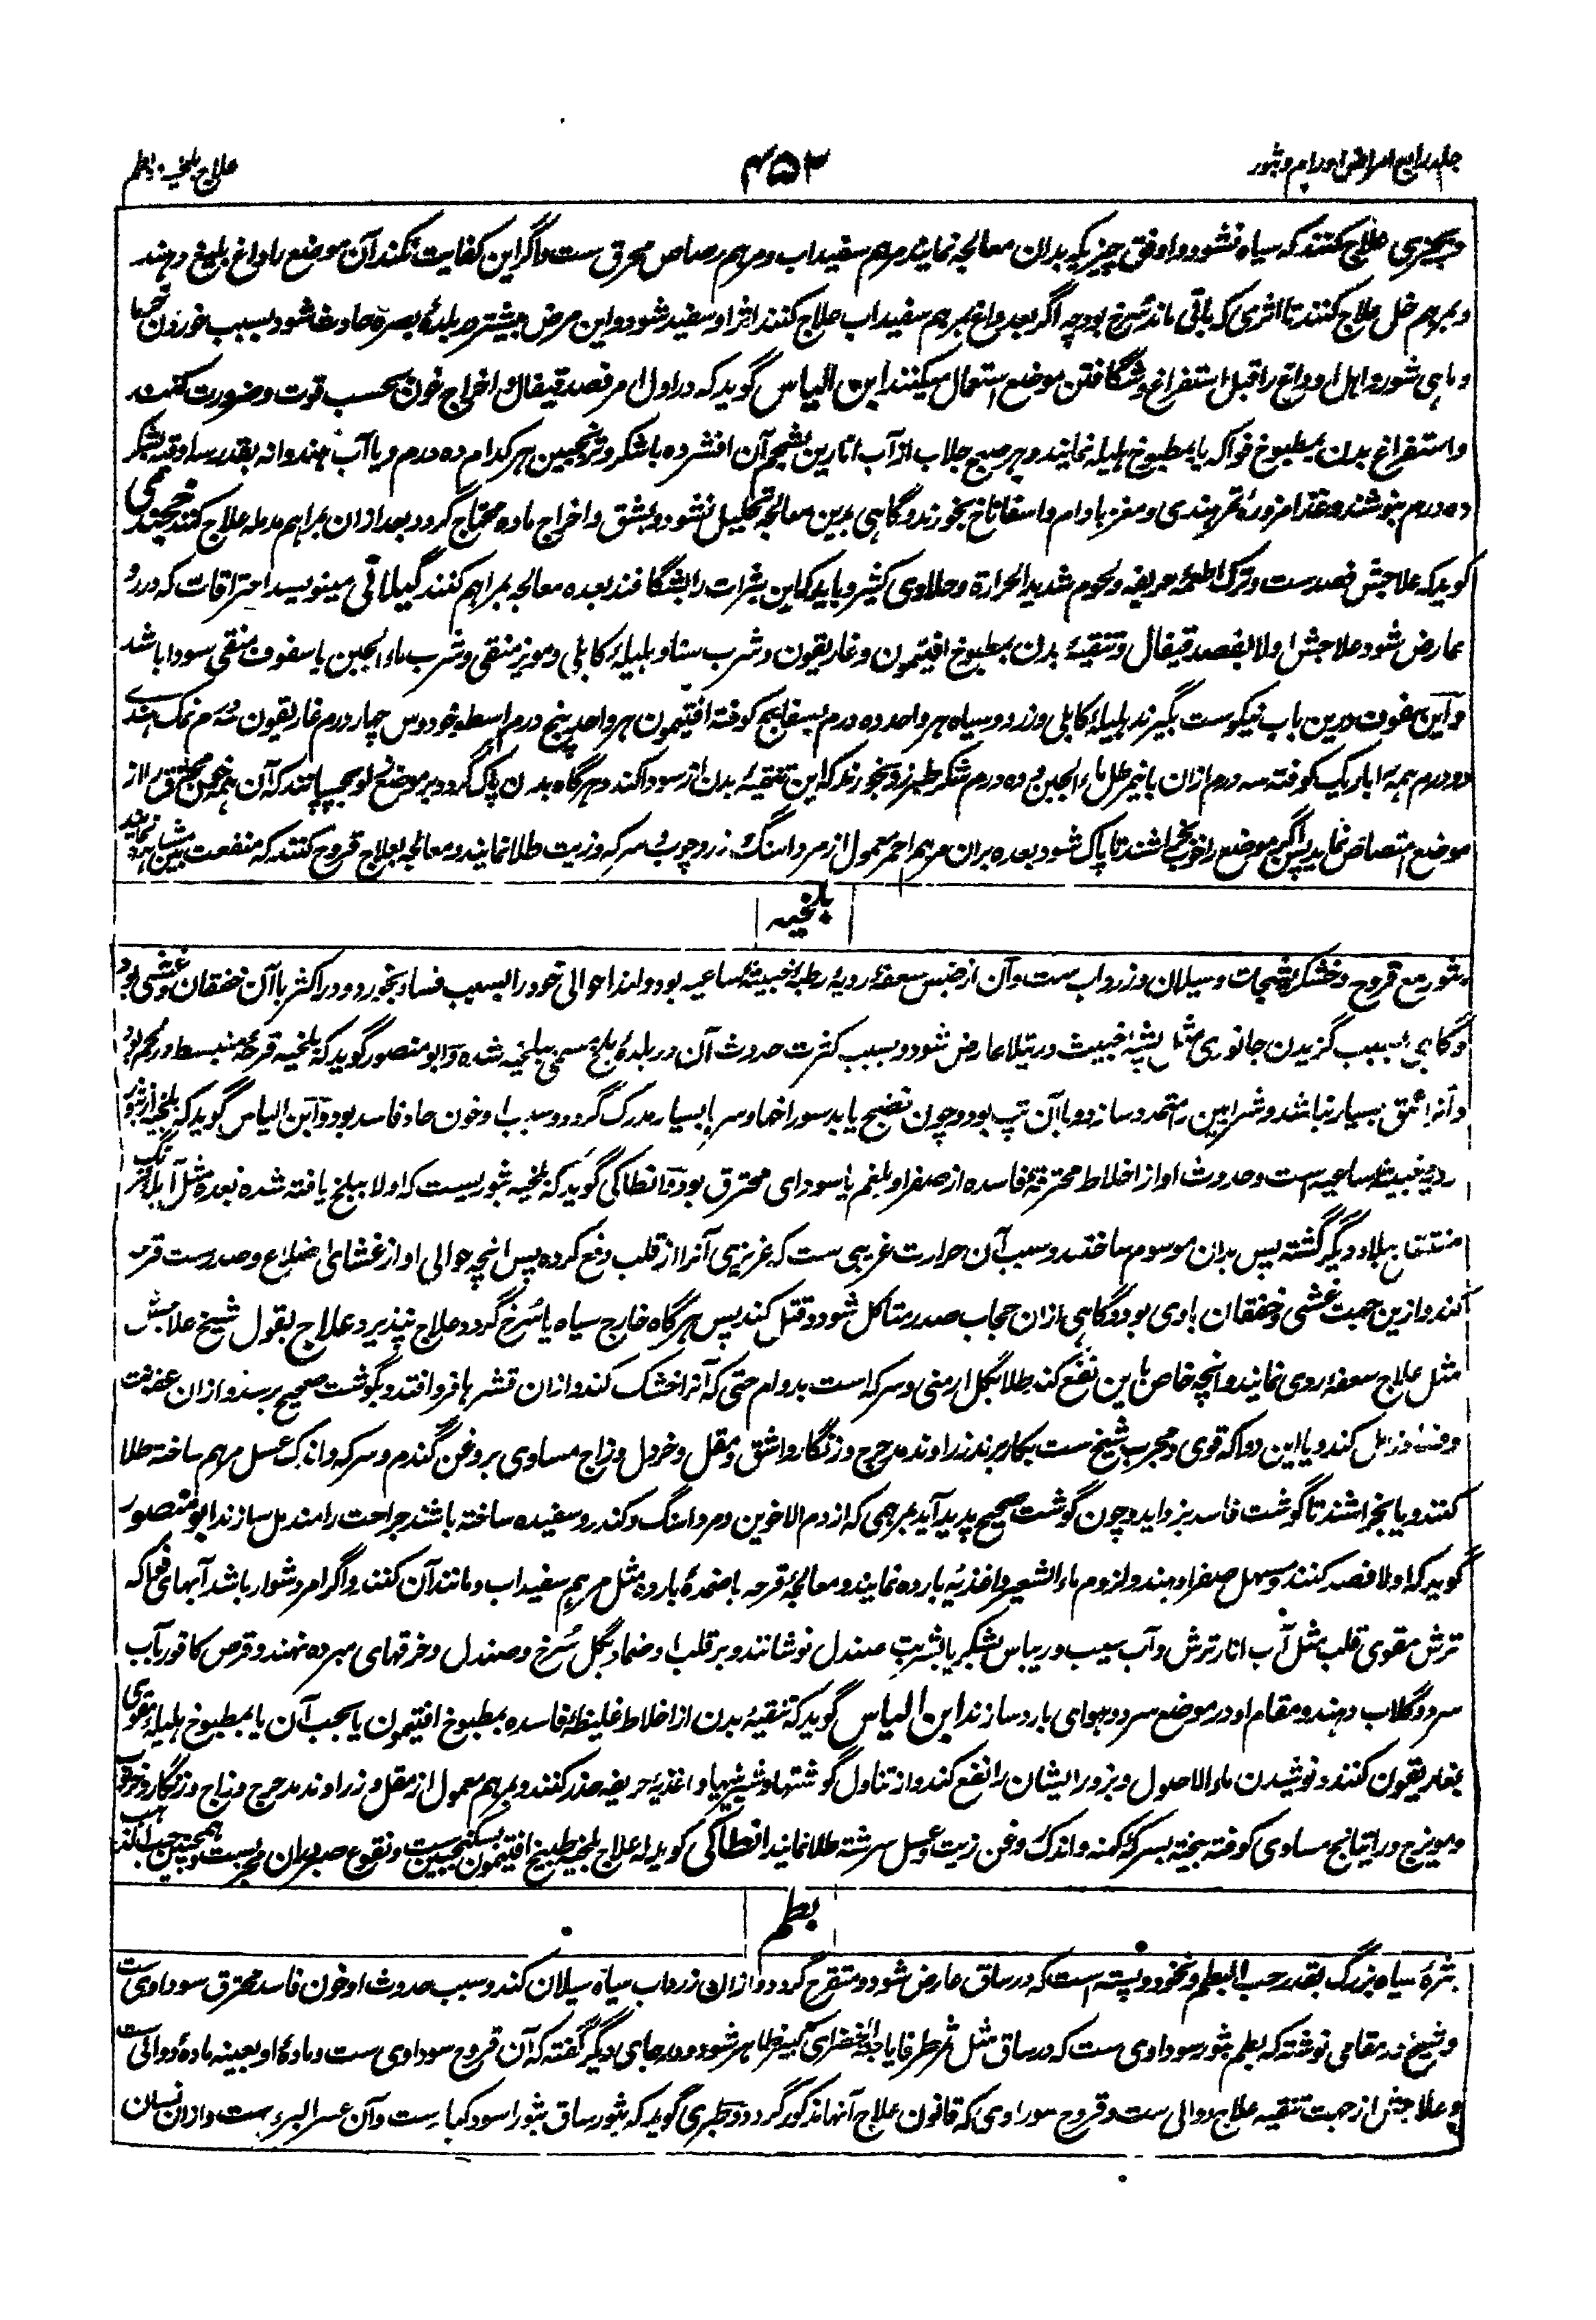 جلد رابع امراض اورام و بثور
۴۵۳
علاج بلخیه و بطم
و بچیزی علاج کنند که سیاه نشود و اوفق چیزیکه بدان معالجه نمایند مرهم سفیداب و مرهم رصاص محرق ست و اگر این کفایت نکند آن موضع را داغ بلیغ دهند
و بمرهم خل علاج کنند تا اثری که باقی ماند سُرخ بود چه اگر بعد داغ بمرهم سفیداب علاج کنند اثر او سفید شود و این مرض بیشتر در بلدهٔ بصره حادث شود بسبب خوردن خرما
و ماهی شور و اهل او داغ را قبل استفراغ و شگافتن موضع استعمال میکنند ابن الیاس گوید که در اول امر فصد قیفال و اخراج خون بحسب قوت و ضرورت کنند
و استفراغ بدن بمطبوخ فواکه یا بمطبوخ هلیله نمایند و هر صبح جلاب از آب انارین بشحم آن افشرده با شکر و ترنجبین هر کدام ده درم و یا آب هندوانه بقدر سه اوقیه بشکر
ده درم بنوشند و غذا مزورهٔ تمر هندی و مغز بادام و اسفاناخ بخورند و گاهی بدین معالجه تحلیل نشود و بشق و اخراج ماده محتاج گردد بعد ازان بمراهم مدمله علاج کنند خجندی
گوید که علاجش فصدست و ترک اطعمهٔ حریفه و لحوم شدید الحرارة و حلاوی کثیر و باید که این بثرات را بشگافند بعده معالجه بمراهم کنند گیلانی مینویسد احتراقات که در رو
عارض شود علاجش اولا بفصد قیفال و تنقیهٔ بدن بمطبوخ افتیمون و غاریقون و شرب سنا و هلیلهٔ کابلی و مویز منقی و شرب ماء الجبن یا سفوف منقی سودا باشد
و این سفوف درین باب نیکوست بگیرند هلیلهٔ کابلی و زرد و سیاه هر واحد ده درم بسفایج کوفته افتیمون هر واحد پنج درم اسطوخودوس چهار درم غاریقون سه درم نمک هندی
دو درم همه را باریک کوفته سه درم ازان با نیم رطل ماء الجبن و ده درم شکر طبرزد بخورند که این تنقیهٔ بدن از سودا کند و هرگاه بدن پاک گردد بر موضع زلو بچسپانند که آن همه خون محترق را از
موضع امتصاص نماید پس اگر موضع را خوب بخراشند تا پاک شود بعده بران مرهم احمر معمول از مرداسنگ و زردچوب و سرکه و زیت طلا نمایند و معالجه بعلاج قروح کنند که منفعت بین مشاهده نمایند
بلخیه
بثور مع قروح و خشک ریشجات و سیلان و زرداب ست و آن از جنس سعفهٔ ردیهٔ رطبهٔ خبیثهٔ ساعیه بود و لهذا حوالی خود را بسبب فساد بخورد و در اکثر با آن خفقان و غشی بود
و گاهی بسبب گزیدن جانوری مثل پشهٔ خبیث و رتیلا عارض شود و بسبب کثرت حدوث آن در بلدهٔ بلخ مسمی ببلخیه شده و ابو منصور گوید که بلخیه قرحهٔ منبسط در لحم بود
و آنرا عمق بسیار نباشد و شرایین را متمدد سازد و با آن تپ بود و چون نضج یابد سوراخها و سرها بسیار مدرک گردد و سبب او خون حاد فاسد بود و ابن الیاس گوید که بلخیه از بثور
ردیهٔ خبیثهٔ ساعیه است و حدوث او از اخلاط محترقهٔ فاسده از صفرا و بلغم یا سودای محترق بود و انطاکی گوید که بلخیه بثوریست که اولا ببلخ یافته شده بعده مثل آبلهٔ فرنگ
منتقل ببلاد دیگر گشته پس بدان موسوم ساختند و سبب آن حرارت غریبی ست که غریزی آنرا از قلب دفع کرده پس آنچه حوالی او از غشای اضلاع و صدرست قرحه
کند و ازین جهت غشی و خفقان با وی بود و گاهی ازان حجاب صدر متاکل شود و قتل کند پس هرگاه خارج سیاه یا سُرخ گردد علاج نپذیرد علاج بقول شیخ علاجش
مثل علاج سعفهٔ ردی نمایند و آنچه خاص باین نفع کند طلا بگل ارمنی و سرکه است بدوام حتی که آنرا خشک کند و ازان قشرها فرو افتد و بگوشت صحیح برسد و ازان عفونت
و فساد زایل کند و یا این دوا که قوی و مجرب شیخ ست بکار برند زراوند مدحرج و زنگار و اشق و مقل و خردل و زاج مساوی بروغن گندم و سرکه و اندک عسل مرهم ساخته طلا
کنند و یا بخراشند تا گوشت فاسد بزداید و چون گوشت صحیح پدید آید بمرهمی که از دم الاخوین و مرداسنگ و کندر و سفیده ساخته باشند جراحت را مندمل سازند ابو منصور
گوید که اولا فصد کنند و مسهل صفرا دهند و لزوم ماء الشعیر و اغذیهٔ بارده نمایند و معالجهٔ قرحه باضمدهٔ بارده مثل مرهم سفیداب و مانند آن کنند و اگر امر دشوار باشد آبهای فواکه
ترش مقوی قلب مثل آب انار ترش و آب سیب و ریباس بشکر یا بشربت صندل نوشانند و بر قلب او ضماد بگل سُرخ و صندل و خرقهای مبرده نهند و قرص کافور بآب
سرد و گلاب دهند و مقام او در موضع سرد و هوای بارد سازند ابن الیاس گوید که تنقیهٔ بدن از اخلاط غلیظهٔ فاسده بمطبوخ افتیمون یا بحب آن یا بمطبوخ هلیله مقوی
بغاریقون کنند و نوشیدن ماء الاصول و بزور ایشان را نفع کند و از تناول گوشتها و شیرینیها و اغذیهٔ حریفه حذر کنند و بمرهم معمول از مقل و زراوند مدحرج و زاج و زنگار و خردل
و مویزج و راتیانج مساوی کوفته بیخته بسرکهٔ کهنه و اندک روغن زیت و عسل سرشته طلا نمایند انطاکی گوید که علاج بلخیه طبیخ افتیمون بسکنجبین ست و نقوع صبر بران مجرب ست و همچنین حب
بطم
بثرهٔ سیاه بزرگ بقدر حب البطم و نخود و پسته است که در ساق عارض شود و متقرح گردد و ازان زرداب سیاه سیلان کند و سبب حدوث او خون فاسد محترق سوداوی ست
و شیخ در مقامی نوشته که بطم بثور سوداوی ست که در ساق مثل ثمر طرفا یا حبة الخضرای کبیر ظاهر شود و در جای دیگر گفته که آن قروح سوداوی ست و مادهٔ او بعینه مادهٔ دوالی ست
و علاجش از جهت تنقیه علاج دوالی ست و قروح سوداوی که قانون علاج آنها مذکور گردد و طبری گوید که بثور ساق بثور اسود کبارست و آن عسر البرء ست و ازان نسان